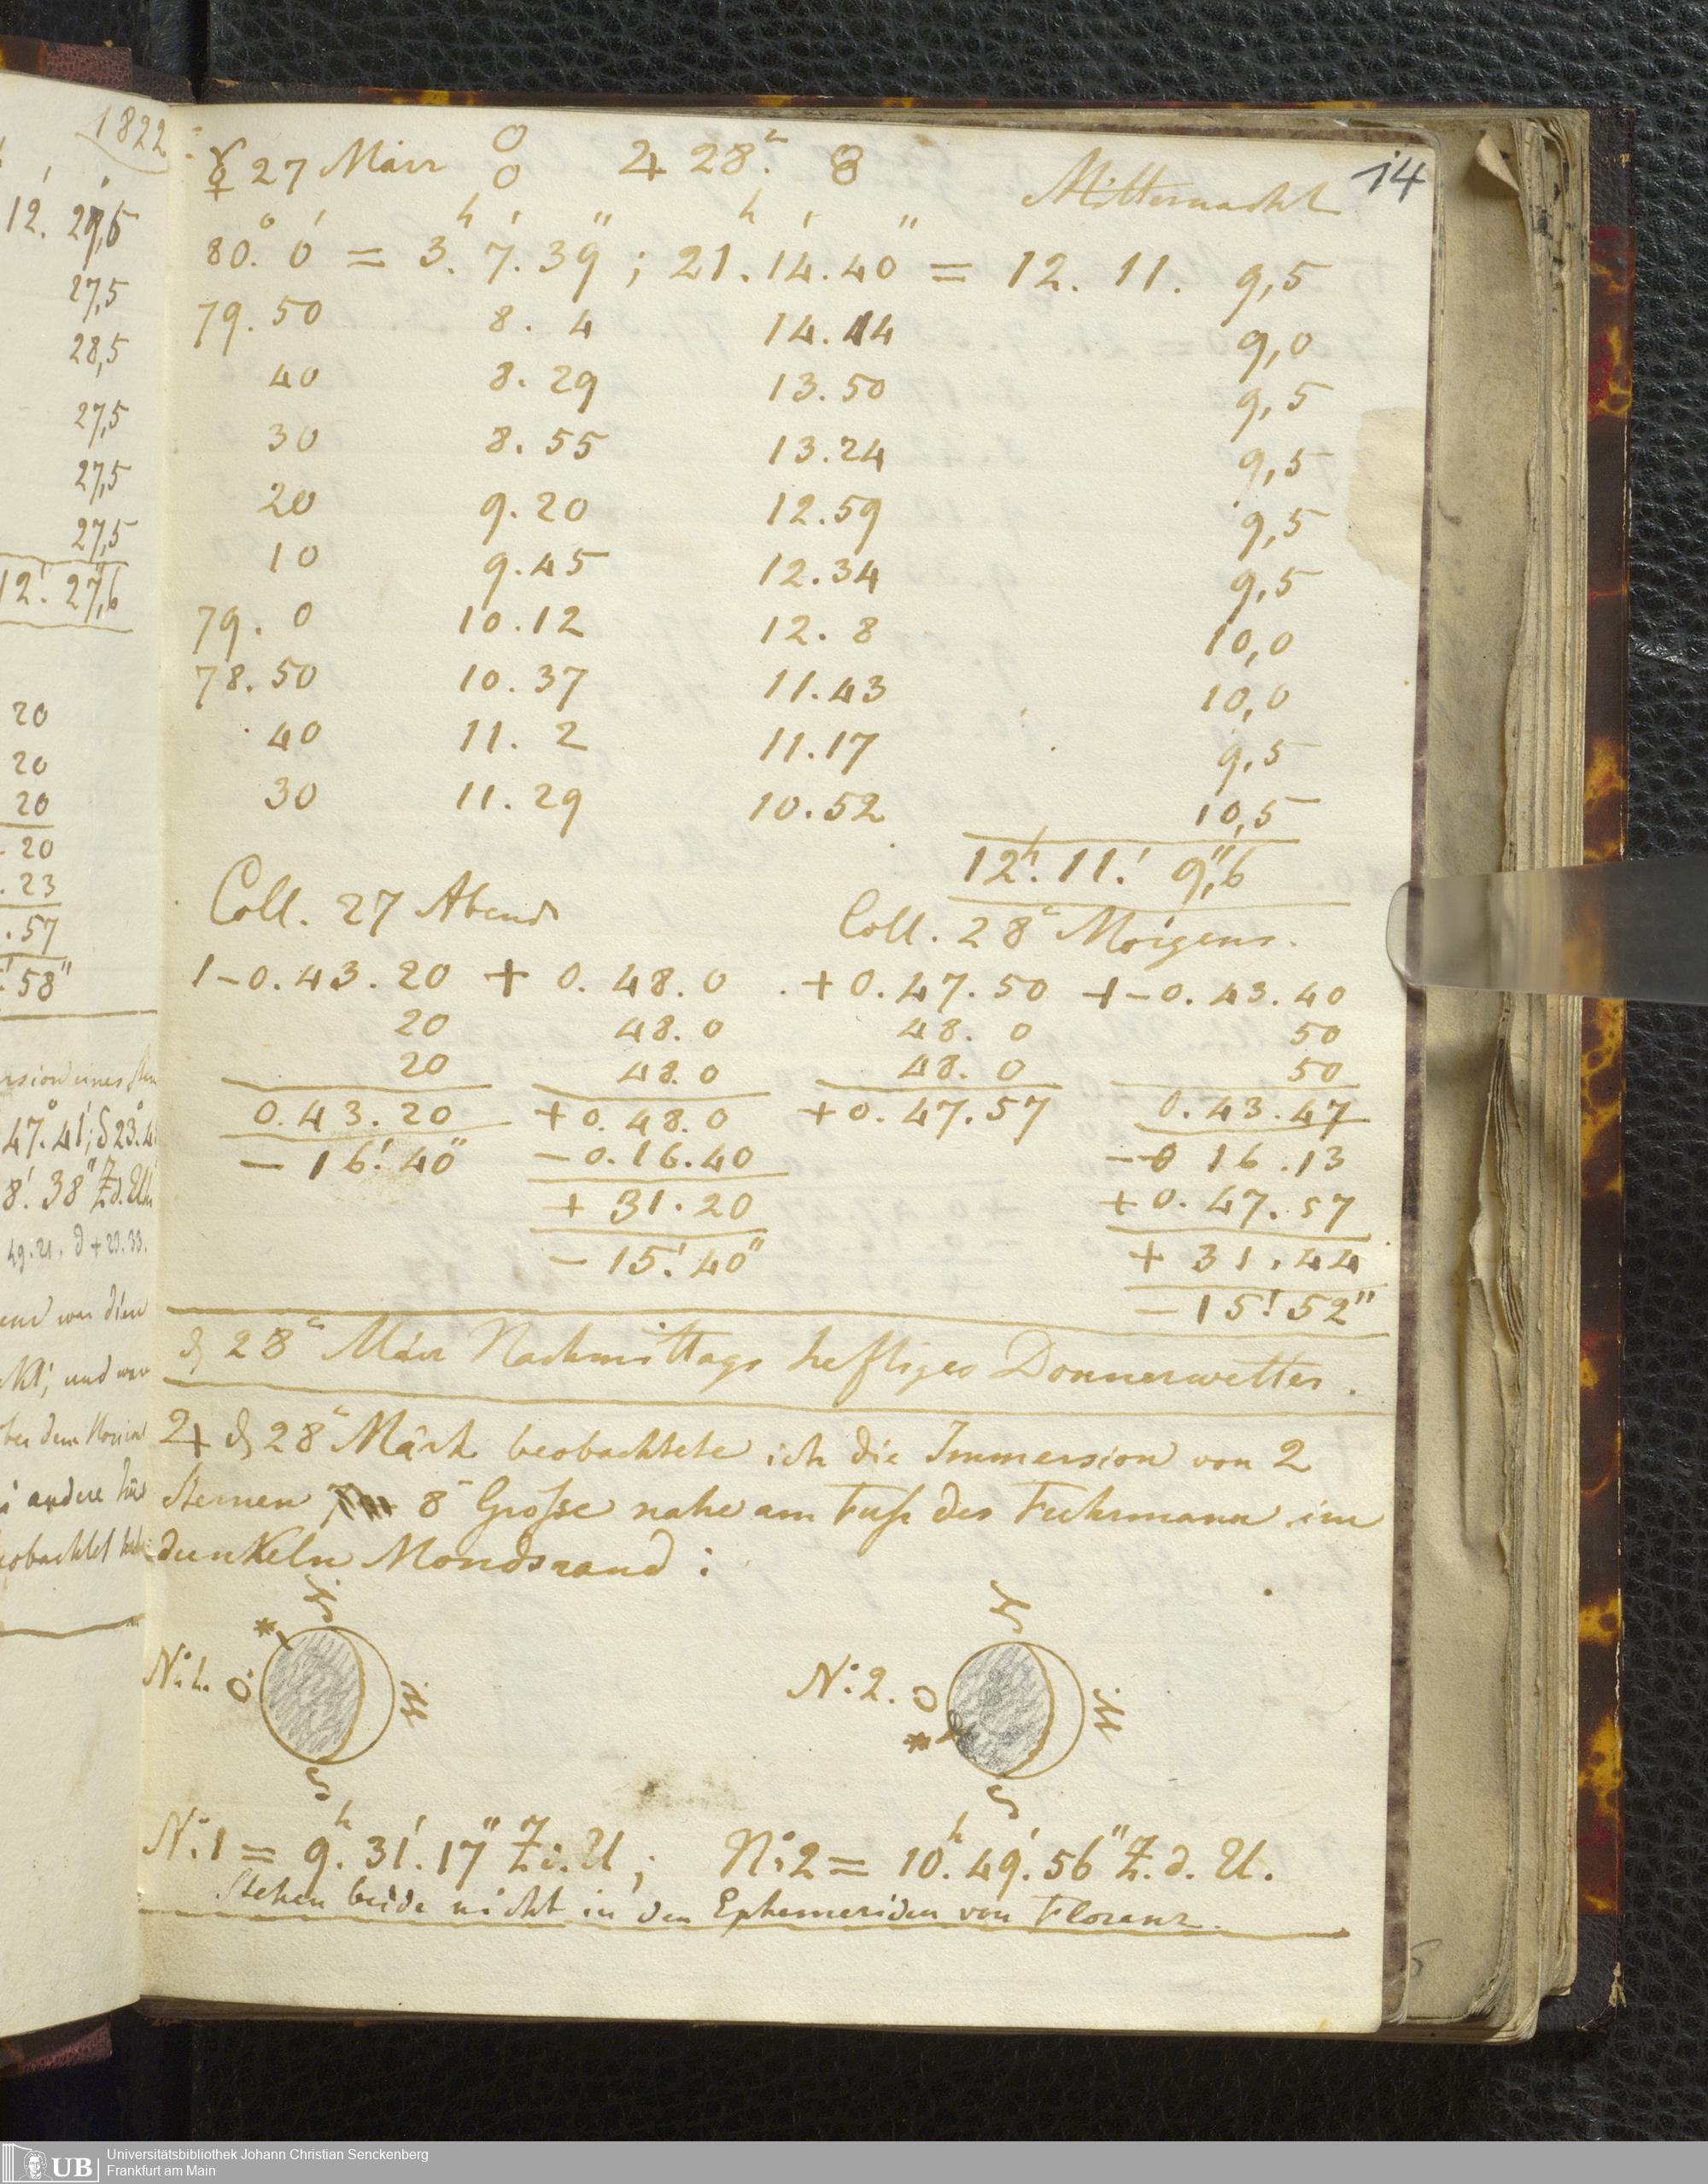 1822
12. 29,5
27,5
28,5
27,5
27,5
27,5
12.' 27,"6
20
20
20
20
.23
.57
58"
47.° 41'; δ 23.°
8.' 38." Z. d. Uh
49.21. δ + 23.33.
andere
14
☿ 27 März ♃ 28.n Mitternacht
80.° 0' = 3.h 7.' 39" ; 21.h 14.' 40" = 12. 11. 9,5
79. 50 8. 4 14. 14 9,0
40 8. 29 13. 50 9,5
30 8. 55 13. 24 9,5
20 9. 20 12. 59 9,5
10 9. 45 12. 34 9,5
79. 0 10. 12 12. 8 10,0
78. 50 10. 37 11. 43 10,0
40 11. 2 11. 17 9,5
30 11. 29 10. 52 10,5
12.h 11.' 9,"6
Coll. 27 Abends Coll. 28n Morgens.
1 - 0. 43. 20 + 0. 48. 0 + 0. 47. 50 + - 0. 43. 40
20 48. 0 48. 0 50
20 48. 0 48. 0 50
0. 43. 20 + 0. 48. 0 + 0. 47. 57 0. 43. 47
- 16.' 40" - 0. 16. 40 - 0 16. 13
+ 31. 20 + 0. 47. 57
- 15.' 40" + 31. 44
- 15.' 52"
d 28n März Nachmittags heftiges Donnerwetter.
♃ d 28n März beobachtete ich die Immersion von 2
Sternen 8r Größe nahe am Fuß des Fuhrmann im
dunkeln Mondsrand :
N
N:1. O W
S
N
N:2. O W
S
N:1 = 9.h 31.' 17" Z. d. U ; N:2 = 10.h 49.' 56" Z. d. U.
Stehen beide nicht in den Ephemeriden von Florenz.
UB
Universitätsbibliothek Johann Christian Senckenberg
Frankfurt am Main